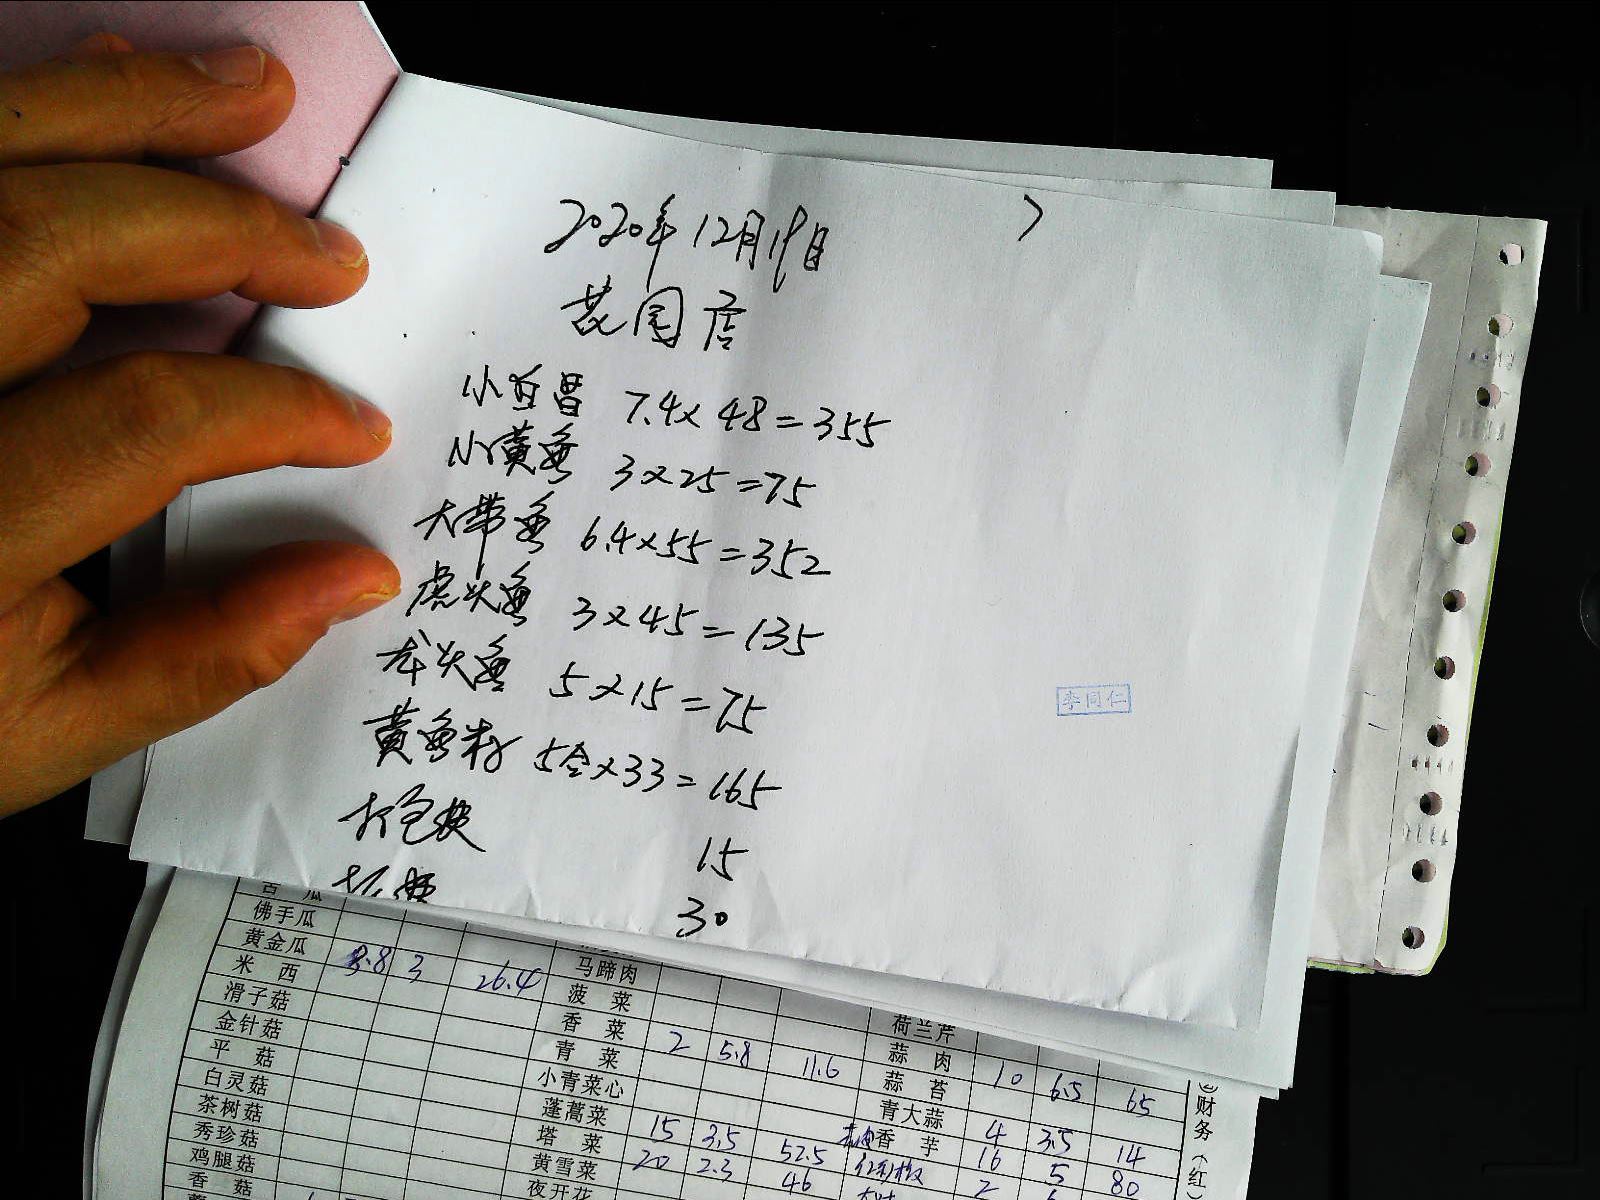 2020年12月19日
花园店
小白昌 7.4×48=355
小黄鱼 3×25=75
大带鱼 6.4×55=352
虎头鱼 3×45=135
龙头鱼 5×15=75
黄鱼籽 5合×33=165
打包费 15
30
李同仁
佛手瓜
黄金瓜 马蹄肉
米西 8.8 3 26.4 菠菜 荷兰芹
滑子菇 香菜 蒜肉
金针菇 青菜 2 5.8 11.6 蒜苔 10 6.5 65
平菇 小青菜心 青大蒜
白灵菇 蓬蒿菜 香芋 4 3.5 14
茶树菇 塔菜 15 3.5 52.5 16 5 80
秀珍菇 黄雪菜 20 2.3 46 2
鸡腿菇 夜开花
香菇
②财务(红)